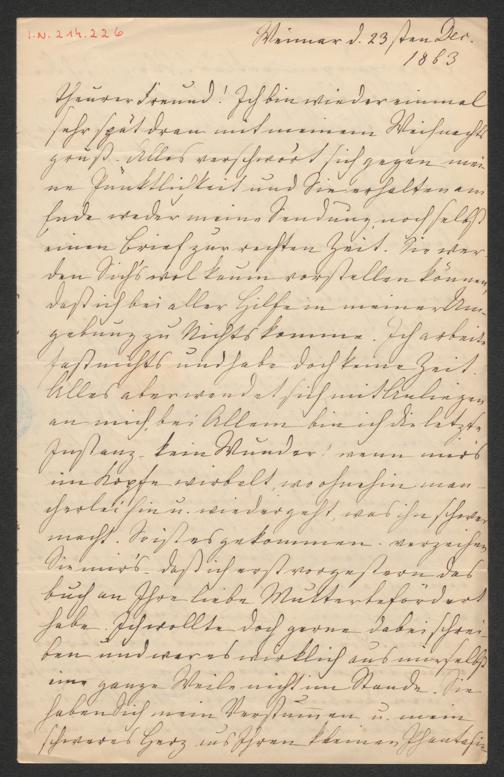 I.N. 214.226
Weimar d. 23sten Dec.
1863
Theurer Freund! Ich bin wieder einmal
sehr spät dran mit meinem Weihnachts
gruß. Alles verschwört sich gegen mei-
ne Pünktlichkeit und Sie erhalten am
Ende weder meine Sendung noch selbst
einen Brief zur rechten Zeit. Sie wer-
den Sich's wol kaum vorstellen können,
daß ich bei aller Hilfe in meiner Um-
gebung zu Nichts komme. Ich arbeite
fast nichts und habe doch keine Zeit.
Alles aber wendet sich mit Anliegen
an mich, bei Allem bin ich die letzte
Instanz - kein Wunder! wenn mir's
im Kopfe wirbelt, wo ohnehin man-
cherlei hin u. wieder geht, was ihn schwer
macht. So ist es gekommen - verzeihen
Sie mir's - daß ich erst vorgestern das
Buch an Ihre liebe Mutter befördert
habe. Ich wollte doch gerne dabei schrei-
ben und war es wirklich aus mir selbst
eine ganze Weile nicht im Stande. Sie
haben Sich mein Verstummen u. mein
schweres Herz aus Ihren kleinen Phantasie